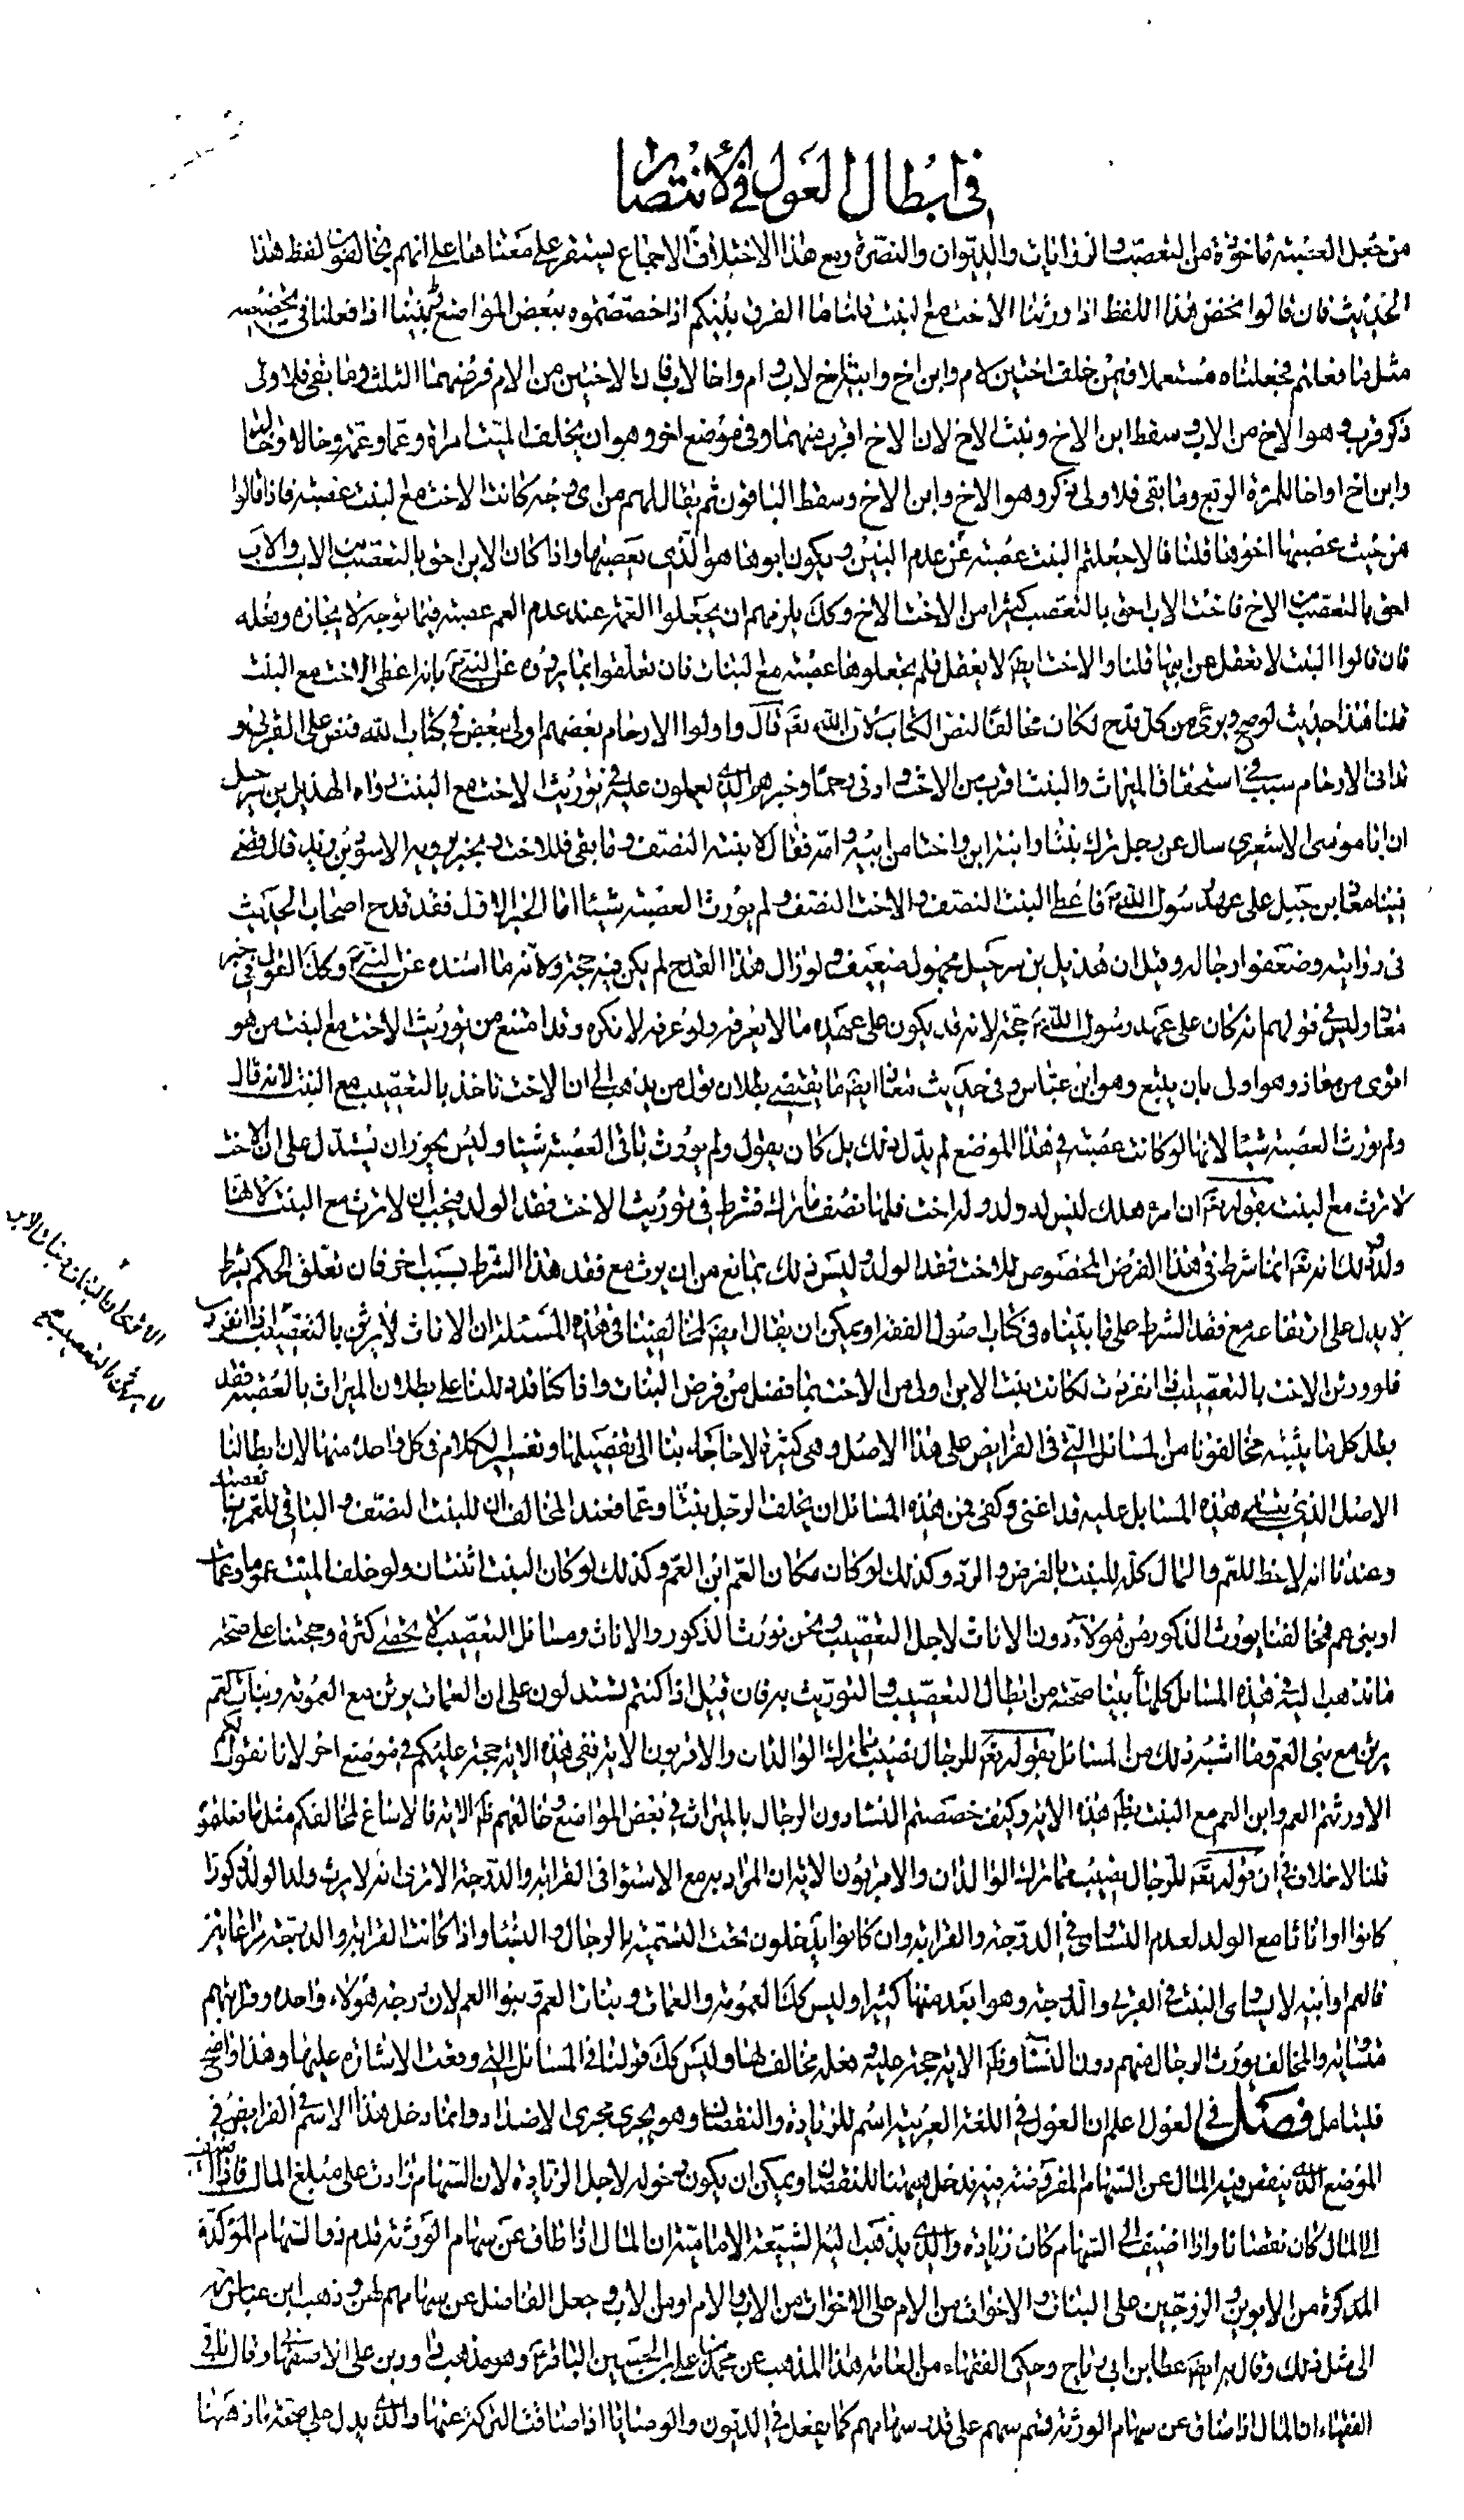 في ابطال العول في الانتصار
من جعل العصبة مأخوذة من التعصب والروايات والديوان والنصرة ومع هذا الاختلاف لا اجماع يستقر على معناها على انهم يخالفون لفظ هذا
الحديث فان قالوا نخص هذا اللفظ اذا ورثنا الاخت مع البنت قلنا ما الفرق بينكم اذا خصصتموه ببعض المواضع وبيننا اذا فعلنا في تخصيصه
مثل ما فعلتم فجعلناه مستعملا فيمن خلف اختين لام وابن اخ وابنة اخ لاب وام واخا لاب فان الاختين من الام فرضهما الثلث وما بقي فلاولى
ذكر قرب وهو الاخ من الاب وسقط ابن الاخ وبنت الاخ لان الاخ اقرب منهما وفي موضع اخر وهو ان يخلف الميت امراة وعما وعمة وخالا وخالة
وابن اخ او اخا للمرئة الربع وما بقي فلاولى ذكر وهو الاخ وابن الاخ وسقط الباقون ثم يقال لهم من اي وجه كانت الاخت مع البنت عصبة فاذا قالوا
من حيث عصبها اخوها قلنا فالا جعلتم البنت عصبة عن عدم البنين ويكون ابوها هو الذي يعصبها واذا كان الابن احق بالتعصيب من الاب والاب
احق بالتعصيب من الاخ فاخت الابن احق بالتعصب كثيرا من الاخت الاخ وكك يلزمهم ان يجعلوا العمة عند عدم العم عصبة فيما توجه لانجازه وفعله
فان قالوا البنت لا تعقل عن ابيها قلنا والاخت ايضا لا تعقل فلم تجعلوها عصبة مع البنات فان تعلقوا بما يروه عن النبي ص بانه اعطى الاخت مع البنت
قلنا هذا حديث لو صح وبرئ من كل قدح لكان مخالفا لنص الكتاب لان الله تع قال واولوا الارحام بعضهم اولى ببعض في كتاب الله فنص على القربى و
تدانى الارحام سبب في استحقاق الميراث والبنت اقرب من الاخت وادنى رحما وخبرهم الذي يعملون عليه في توريث الاخت مع البنت رواه الهذيل بن شرحبيل
ان ابا موسى الاشعري سال عن رجل ترك بنتا وابنة ابن واختا من ابيه وامه فقال لابنته النصف وما بقي فللاخت وبخبر يرويه الاسود بن يزيد قال قضى
بيننا معاذ بن جبل على عهد رسول الله ص فاعطى البنت النصف والاخت النصف ولم يورث العصبة شيئا اما الخبر الاول فقد قدح اصحاب الحديث
في روايته وضعفوا رجاله وقيل ان هذيل بن شرحبيل مجهول ضعيف ولو زال هذا القدح لم يكن فيه حجة ولانه ما اسنده عن النبي ص وكك القول في خبر
معاذ وليس في قولهم انه كان على عهد رسول الله ص حجة لانه قد يكون على عهده ما لا يعرفه ولو عرفه لانكره وقد امتنع من توريث الاخت مع البنت من هو
اقوى من معاذ وهو اولى بان يتبع وهو ابن عباس وفي حديث معاذ ايضا ما يقتضي بطلان قول من يذهب الى ان الاخت تاخذ بالتعصيب مع البنت لانه قال
ولم يورث العصبة شيئا لانها لو كانت عصبة في هذا الموضع لم يدل ذلك بل كان يقول ولم يورث باقي العصبة شيئا وليس يجوز ان يستدل على ان الاخت
لا ترث مع البنت بقوله تع ان امرء هلك ليس له ولد وله اخت فلها نصف ما ترك فشرط في توريث الاخت فقد الولد فيجب ان لا ترث مع البنت لانها
ولد وذلك انه تع انما شرط في هذا الفرض المخصوص للاخت فقد الولد وليس ذلك بمانع من ان يرث مع فقد هذا الشرط بسبب اخر فان تعلق الحكم بشرط
لا يدل على ارتفاعه مع فقد الشرط على ما بيناه في كتاب اصول الفقه ويمكن ان يقال ايضا لمخالفينا في هذه المسئلة ان الاناث لا يرثن بالتعصيب اذا انفردن
فلو ورثن الاخت بالتعصيب اذا انفردت لكانت بنت الابن اولى من الاخت بما فضل من فرض البنات واذا كنا قد دللنا على بطلان الميراث بالعصبة فقد
بطل كل ما يثبته مخالفونا من المسائل التي في الفرايض على هذا الاصل وهي كثيرة لا حاجة بنا الى تفصيلها وتفسير الكلام في كل واحدة منها لان ابطالنا
الاصل الذي بنيت هذه المسائل عليه قد اغنى وكفى ومن هذه المسائل ان يخلف الرجل بنتا وعما فعند المخالف ان للبنت النصف والباقي للعم بالتعصيب
وعندنا انه لا حظ للعم والمال كله للبنت بالفرض والرد وكذلك لو كان مكان العم ابن العم وكذلك لو كان البنت اثنتان ولو خلف الميت عمومة وعمات
او بني عم فمخالفنا يورث الذكور من هؤلاء دون الاناث لاجل التعصيب ونحن نورث الذكور والاناث ومسائل التعصيب لا تحصى كثرة وحجتنا على صحة
ما نذهب اليه في هذه المسائل كلها ما بينا صحته من ابطال التعصيب والتوريث به فان قيل اذا كنتم تستدلون على ان العمات يرثن مع العمومة وبنات العم
يرثن مع بني العم وما اشبه ذلك من المسائل بقوله تع للرجال نصيب مما ترك الوالدان والاقربون الاية ففي هذه الاية حجة عليكم في موضع اخر لانا نقول لكم
الا ورثتم العم وابن العم مع البنت بظاهر هذه الاية وكيف خصصتم النساء دون الرجال بالميراث في بعض المواضع وخالفتم ظاهر الاية فالا ساغ لمخالفكم مثل ما فعلتموه
قلنا لا خلاف في ان قوله تع للرجال نصيب مما ترك الوالدان والاقربون الاية ان المراد به مع الاستواء في القرابة والدرجة الا ترى انه لا يرث ولد الولد ذكورا
كانوا او اناثا مع الولد لعدم التساوي في الدرجة والقرابة وان كانوا يدخلون تحت التسمية بالرجال والنساء واذا كانت القرابة والدرجة مراعاتين
فالعم او ابنه لا يساوي البنت في القربى والدرجة وهو ابعد منها كثيرا وليس كك العمومة والعمات وبنات العم وبنوا العم لان درجة هؤلاء واحدة وقرابتهم
متساوية والمخالف يورث الرجال منهم دون النساء وظاهر الاية حجة عليه وفعله مخالف لها وليس كك قولنا في المسائل التي وقعت الاشارة عليها وهذا واضح
فليتامل فصل في العول اعلم ان العول في اللغة العربية اسم للزيادة والنقصان وهو يجري مجرى الاضداد وانما دخل هذا الاسم في الفرايض في
الموضع الذي ينقص فيه المال عن السهام المفروضة فيه فدخل هيهنا للنقصان ويمكن ان يكون دخوله لاجل الزيادة لان السهام زادت على مبلغ المال فاذا اضيف
الى المال كان نقصانا واذا اضيف الى السهام كان زيادة والذي يذهب اليه الشيعة الامامية ان المال اذا ضاق عن سهام الورثة قدم ذوا السهام المؤكدة
المذكورة من الابوين والزوجين على البنات والاخوات من الام على الاخوات من الاب والام او من الاب وجعل الفاضل عن سهامهم لهن وذهب ابن عباس ره
الى مثل ذلك وقال به ايضا عطا بن ابي رباح وحكى الفقهاء من العامة هذا المذهب عن محمد بن علي بن الحسين الباقر ع وهو مذهب داود بن علي الاصفهاني وقال باقي
الفقهاء ان المال اذا ضاق عن سهام الورثة قسم بينهم على قدر سهامهم كما يفعل في الديون والوصايا اذا ضاقت التركة عنها والذي يدل على صحة ما ذهبنا
الا ترى ان البنات وبنات الاب
لا يرثن بالتعصيب